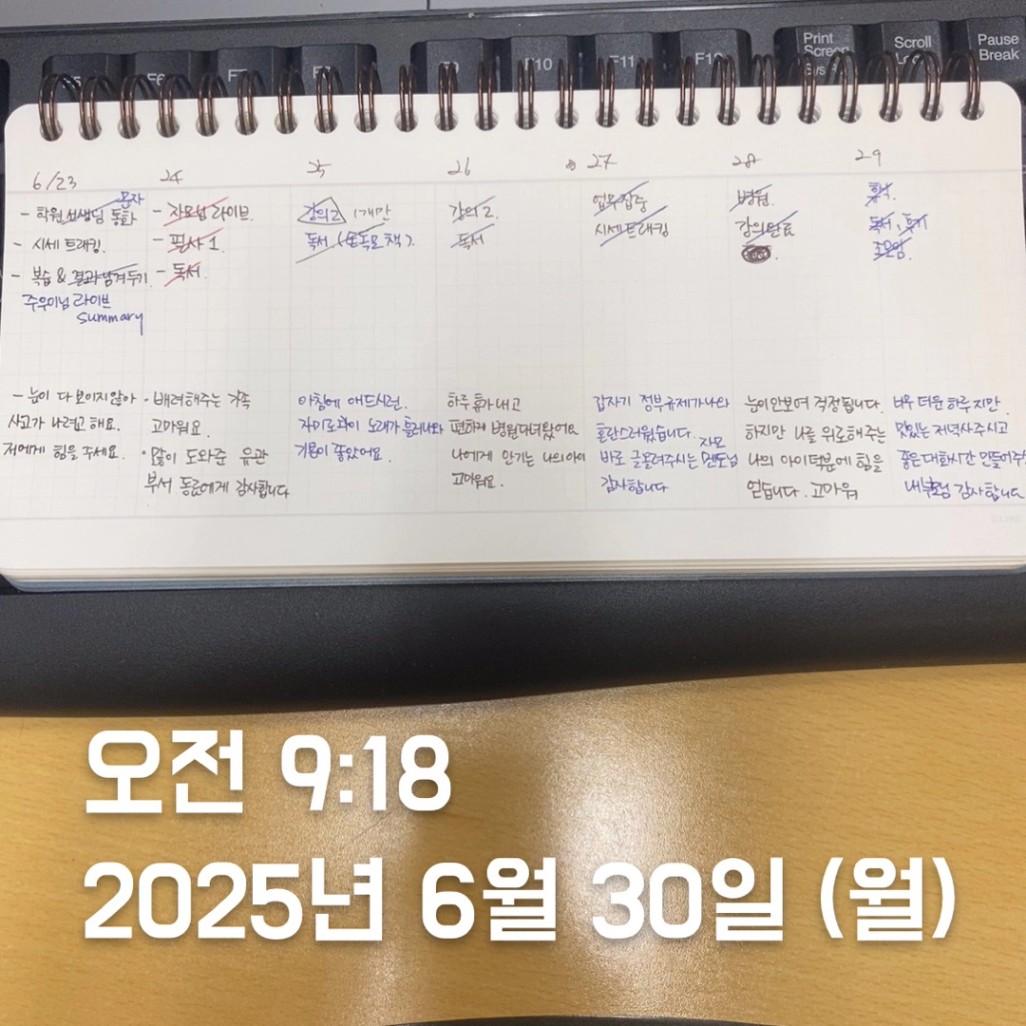 F6
F10
F11
Print
Screen
Scroll
Pause
Break
6/23
- 학원선생님 통화 문자
- 시세트래킹.
- 복습 & 결과남겨두기
주우이님 라이브
summary
24
- 자모님 라이브.
- 필사 1
- 독서.
25
강의2 1개만
독서 (돈독모 책).
26
강의 2.
독서
27
업무집중
시세트래킹
28
병원.
강의완료
29
독서,
조모임.
- 눈이 다 보이지 않아
사고가 나려고 해요.
저에게 힘을 주세요.
· 배려해주는 가족
고마워요.
· 많이 도와준 유관
부서 동료에게 감사합니다
아침에 애드시런.
노래가 흘러나와
기분이 좋았어요.
하루 휴가내고
편하게 병원다녀왔어요
나에게 안기는 나의 아이
고마워요.
갑자기 정부규제가 나와
혼란스러웠습니다.
바로 글올려주시는 자모 멘토님
감사합니다
눈이 안보여 걱정됩니다.
하지만 나를 위로해주는
나의 아이덕분에 힘을
얻습니다. 고마워
너무 더운 하루 지만
맛있는 저녁사주시고
좋은 대화시간 만들어주
감사합니다
오전 9:18
2025년 6월 30일 (월)